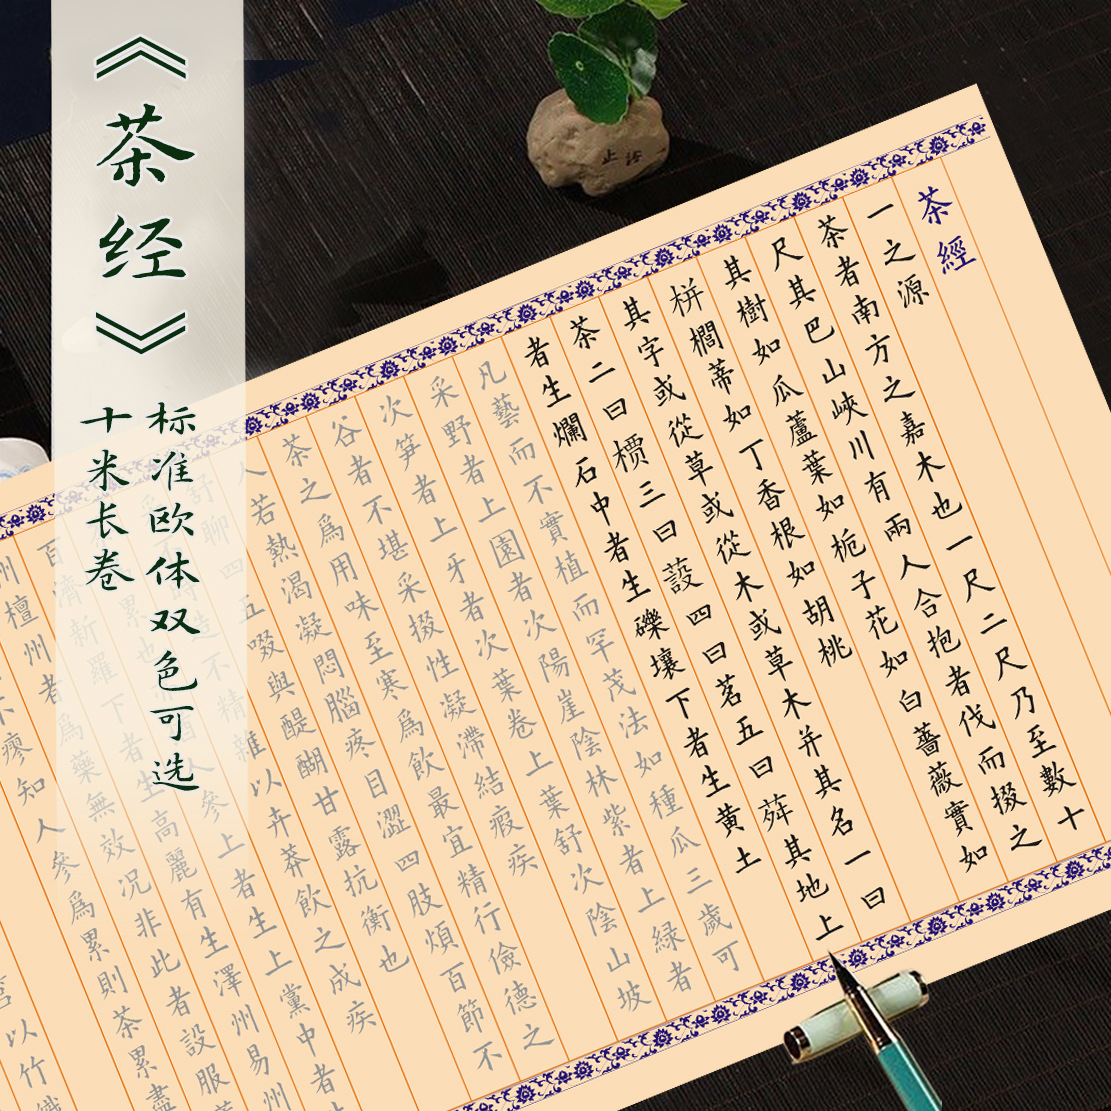 《茶经》
标准欧体双色可选
十米长卷
茶經
一之源
茶者南方之嘉木也一尺二尺乃至數十
尺其巴山峽川有兩人合抱者伐而掇之
其樹如瓜蘆葉如栀子花如白薔薇實如
栟櫚蒂如丁香根如胡桃
其字或從草或從木或草木并其名一曰
茶二曰槚三曰蔎四曰茗五曰荈其地上
者生爛石中者生礫壤下者生黄土
凡藝而不實植而罕茂法如種瓜三歲可
采野者上園者次陽崖陰林紫者上緑者
次笋者上牙者次葉卷上葉舒次陰山坡
谷者不堪采掇性凝滯結瘕疾
茶之爲用味至寒爲飲最宜精行儉德之
人若熱渴凝悶腦疼目澀四肢煩百節不
舒聊四五啜與醍醐甘露抗衡也
采不時造不精雜以卉莽飲之成疾
累也人參上者生上黨中者
百濟新羅下者生高麗有生澤州易州
州檀州者爲藥無效况非此者設服
不瘳知人參爲累則茶累盡
以竹